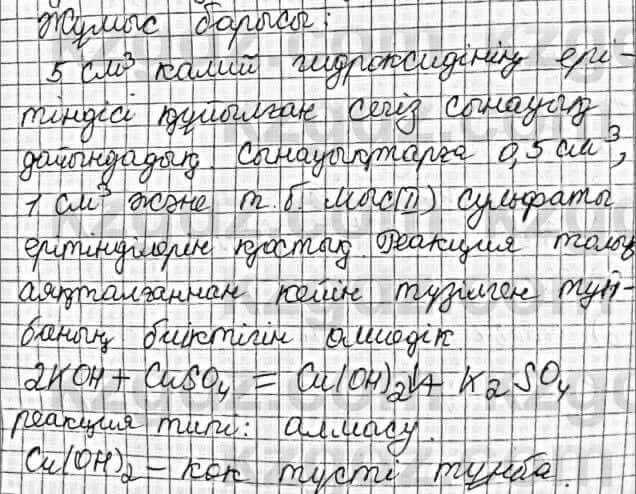 Жұмыс барысы:
5 см³ калий гидроксидінің ері-
тіндісі құйылған сегіз сынауық
дайындадық. Сынауықтарға 0,5 см³,
1 см³ және т.б. мыс(II) сульфаты
ерітінділерін қостық. Реакция толық
аяқталғаннан кейін түзілген тұн-
баның биіктігін өлшедік
2KOH + CuSO₄ = Cu(OH)₂↓ + K₂SO₄
реакция типі: алмасу.
Cu(OH)₂ – көк түсті тұнба.